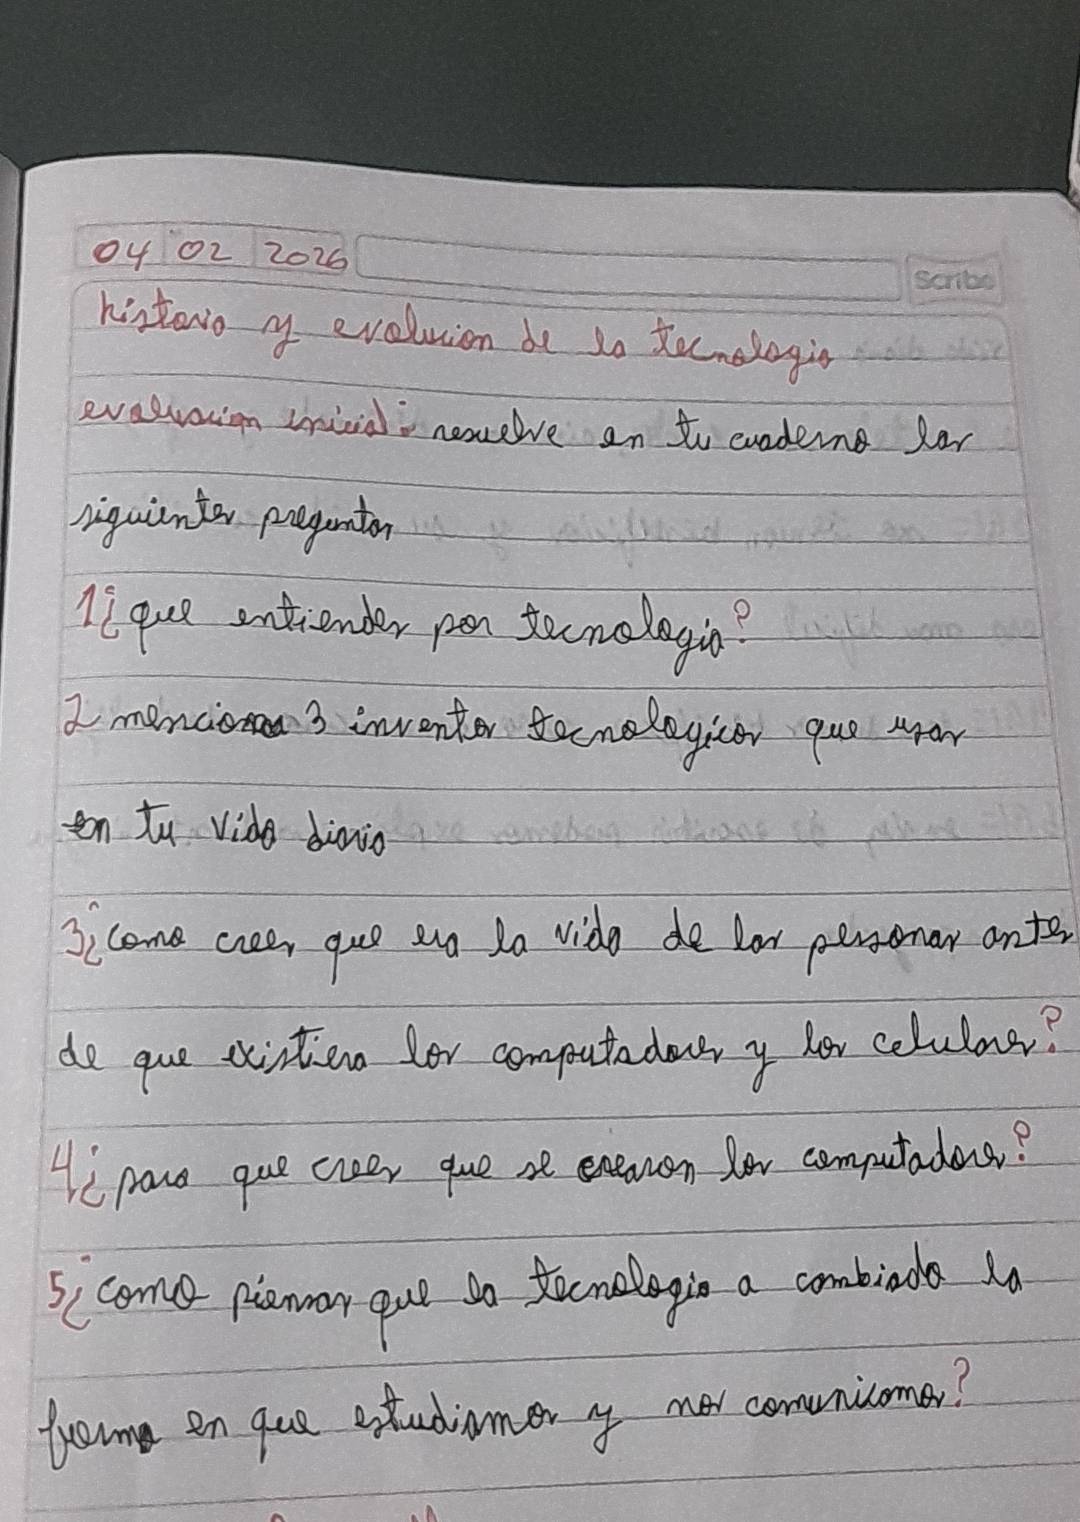 04 02 2026
Scribe
historia y evolucion de la tecnologia
evaluacion inicial: resuelve en tu cuaderno las
siguientes preguntas
1¿que entiendes por tecnologia?
2 menciona 3 inventos tecnologicos que usas
en tu vida diaria
3¿como crees que era la vida de las personas antes
de que existiera los computadores y los celulares?
4¿para que crees que se crearon los computadores?
5¿como piensas que la tecnologia a cambiado la
forma en que estudiamos y nos comunicamos?